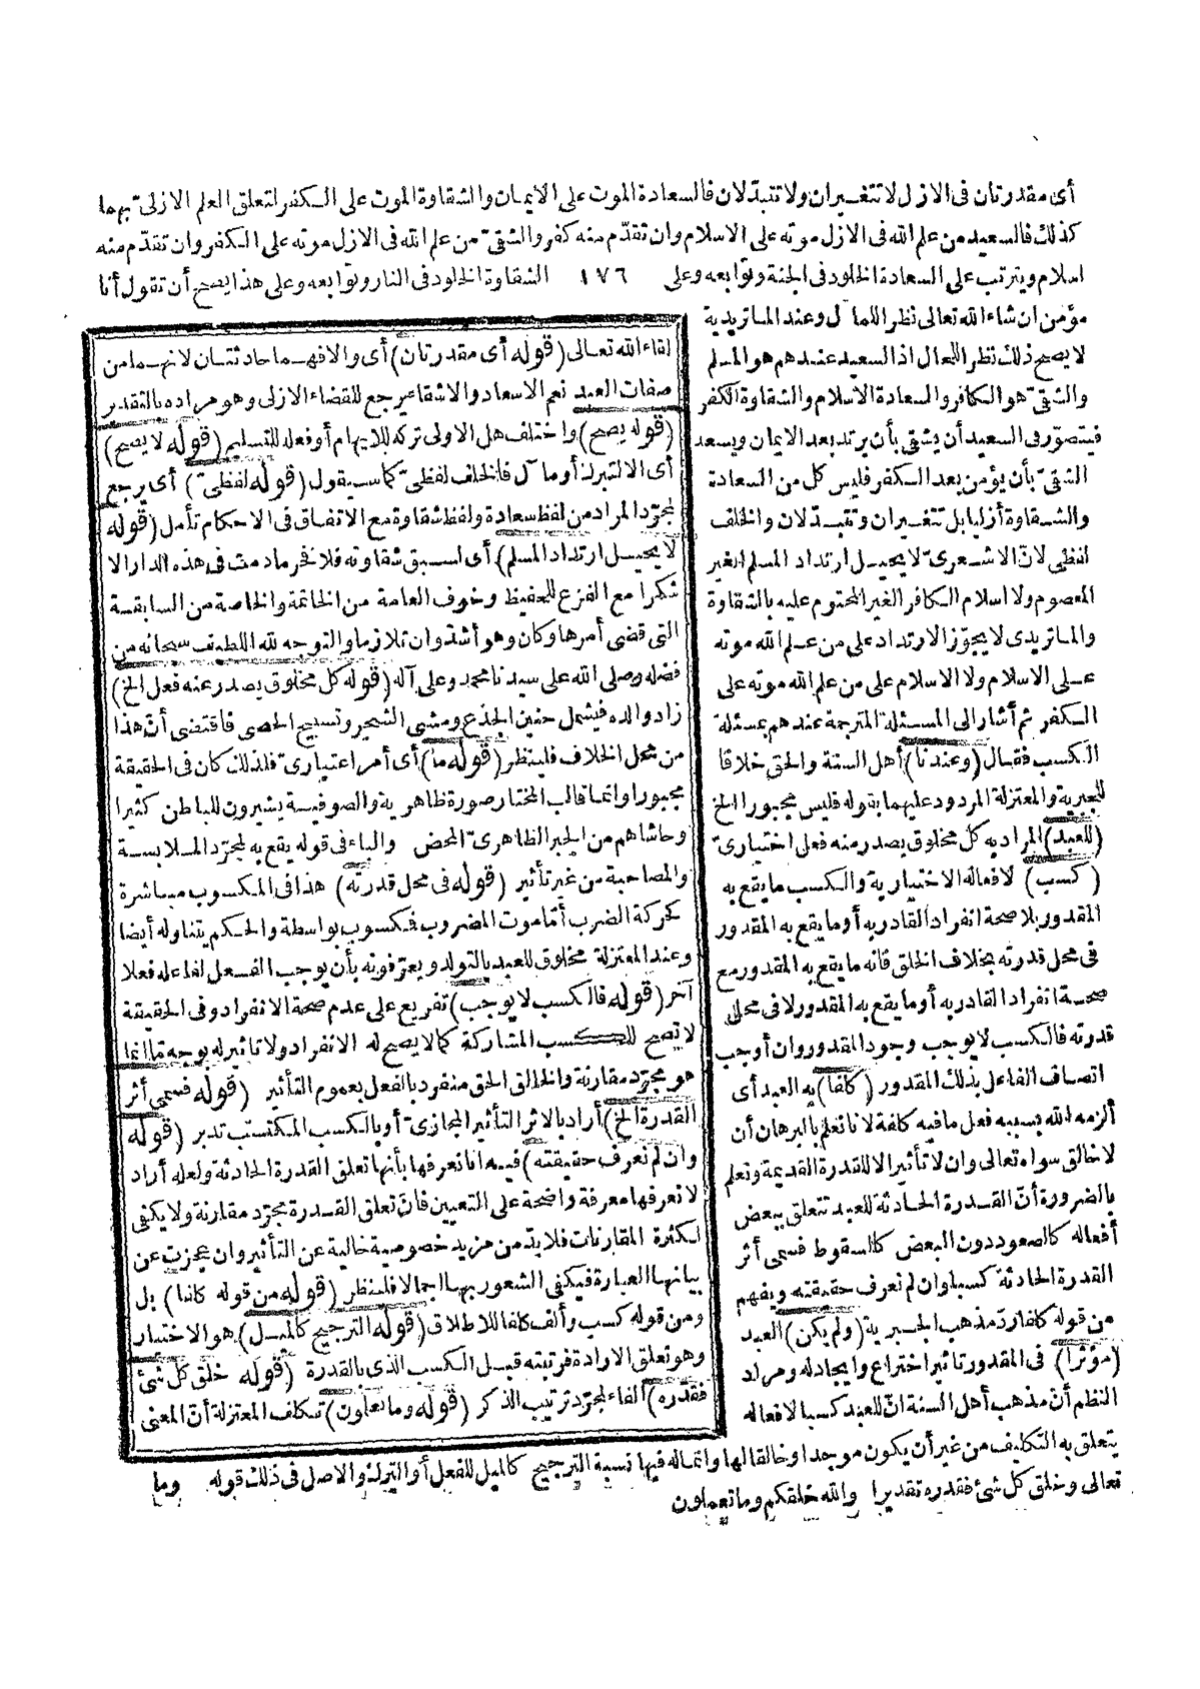 أى مقدرتان فى الازل لا تتغيران ولا تتبدلان فالسعادة الموت على الايمان والشقاوة الموت على الكفر لتعلق العلم الازلى بهما
كذلك فالسعيد من علم الله فى الازل موته على الاسلام وان تقدّم منه كفر والشقىّ من علم الله فى الازل موته على الكفر وان تقدّم منه
اسلام ويترتب على السعادة الخلود فى الجنة وتوابعه وعلى ١٧٦ الشقاوة الخلود فى النار وتوابعه وعلى هذا يصح أن تقول أنا
مؤمن ان شاء الله تعالى نظرا للمآل وعند الماتريدية
لا يصح ذلك نظرا للحال اذ السعيد عندهم هو المسلم
والشقىّ هو الكافر والسعادة الاسلام والشقاوة الكفر
فيتصوّر فى السعيد أن يشقى بأن يرتد بعد الايمان ويسعد
الشقىّ بأن يؤمن بعد الكفر فليس كل من السعادة
والشقاوة أزليا بل تتغيران وتتبدلان والخلف
لفظى لانّ الاشعرىّ لا يحيل ارتداد المسلم الغير
المعصوم ولا اسلام الكافر الغير المحتوم عليه بالشقاوة
والماتريدى لا يجوّز الارتداد على من علم الله موته
على الاسلام ولا الاسلام على من علم الله موته على
الكفر ثم أشار الى المسئلة المترجمة عندهم بمسئلة
الكسب فقال (وعندنا) أهل السنة والحق خلافا
للجبرية والمعتزلة المردود عليهما بقوله فليس مجبورا الخ
(للعبد) المراد به كل مخلوق يصدر منه فعل اختيارىّ
(كسب) لافعاله الاختيارية والكسب ما يقع به
المقدور بلا صحة انفراد القادر به أو ما يقع به المقدور
فى محل قدرته بخلاف الخلق فانه ما يقع به المقدور مع
صحة انفراد القادر به أو ما يقع به المقدور لا فى محل
قدرته فالكسب لا يوجب وجود المقدور وان أوجب
اتصاف الفاعل بذلك المقدور (كلفا) به العبد أى
ألزمه الله بسببه فعل ما فيه كلفة لانا نعلم بالبرهان أن
لا خالق سواه تعالى وان لا تأثير الا للقدرة القديمة ونعلم
بالضرورة أنّ القدرة الحادثة للعبد تتعلق ببعض
أفعاله كالصعود دون البعض كالسقوط فسمى أثر
القدرة الحادثة كسبا وان لم نعرف حقيقته ويفهم
من قوله كلفا ردّ مذهب الجبرية (ولم يكن) العبد
(مؤثرا) فى المقدور تأثير اختراع وايجاد له ومراد
النظم أنّ مذهب أهل السنة انّ للعبد كسبا لافعاله
يتعلق به التكليف من غير أن يكون موجدا وخالقا لها وانما له فيها نسبة الترجيح كالميل للفعل أو الترك والاصل فى ذلك قوله وما
تعالى وخلق كل شئ فقدره تقديرا والله خلقكم وما تعملون
لقاء الله تعالى (قوله أى مقدرتان) أى والا فهما حادثتان لانهما من
صفات العبد نعم الاسعاد والاشقاء يرجع للقضاء الازلى وهو مراده بالتقدير
(قوله يصح) واختلف هل الاولى تركه للايهام أو فعله للتسليم (قوله لا يصح)
أى الا لتبرك أو مآل فالخلف لفظىّ كما سيقول (قوله لفظىّ) أى يرجع
لمجرّد المراد من لفظ سعادة ولفظ شقاوة مع الاتفاق فى الاحكام تأمل (قوله
لا يحيل ارتداد المسلم) أى لسبق شقاوته فلا فخر ما دمت فى هذه الدار الا
شكرا مع الفزع للحفيظ وخوف العامة من الخاتمة والخاصة من السابقة
التى قضى أمرها وكان وهو أشدّ وان تلازما والتوجه لله اللطيف سبحانه من
فضله وصلى الله على سيدنا محمد وعلى آله (قوله كل مخلوق يصدر عنه فعل الخ)
زاد والده فيشمل حنين الجذع ومشى الشجر وتسبيح الحصى فاقتضى أنّ هذا
من محل الخلاف فلينظر (قوله ما) أى أمر اعتبارىّ فلذلك كان فى الحقيقة
مجبورا وانما قالب المختار صورة ظاهرية والصوفية يشيرون للباطن كثيرا
وحاشاهم من الجبر الظاهرىّ المحض والباء فى قوله يقع به لمجرّد الملابسة
والمصاحبة من غير تأثير (قوله فى محل قدرته) هذا فى المكسوب مباشرة
كحركة الضرب أمّا موت المضروب فمكسوب بواسطة والحكم يتناوله أيضا
وعند المعتزلة مخلوق للعبد بالتولد ويعرّفونه بأن يوجب الفعل لفاعله فعلا
آخر (قوله فالكسب لا يوجب) تفريع على عدم صحة الانفراد وفى الحقيقة
لا تصح للكسب المشاركة كما لا يصح له الانفراد ولا تأثير له بوجه تما انما
هو مجرّد مقارنة والخالق الحق منفرد بالفعل بعموم التأثير (قوله فسمى أثر
القدرة الخ) أراد بالاثر التأثير المجازىّ أو بالكسب المكتسب تدبر (قوله
وان لم نعرف حقيقته) فيه انا نعرفها بأنها تعلق القدرة الحادثة ولعله أراد
لا نعرفها معرفة واضحة على التعيين فانّ تعلق القدرة مجرّد مقارنة ولا يكفى
لكثرة المقارنات فلا بدّ من مزيد خصوصية خالية عن التأثير وان عجزت عن
بيانها العبارة فيكفى الشعور بها اجمالا فلينظر (قوله من قوله كلفا) بل
ومن قوله كسب وألف كلفا للاطلاق (قوله الترجيح كالميل) هو الاختيار
وهو تعلق الارادة فرتبته قبل الكسب الذى بالقدرة (قوله خلق كل شئ
فقدره) الفاء لمجرّد ترتيب الذكر (قوله وما تعملون) تتكلف المعتزلة أنّ المعنى